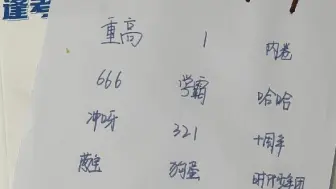 逢考
重高 1 内卷
666 学霸 哈哈
冲呀 321 十周年
狗蛋 时代少年团